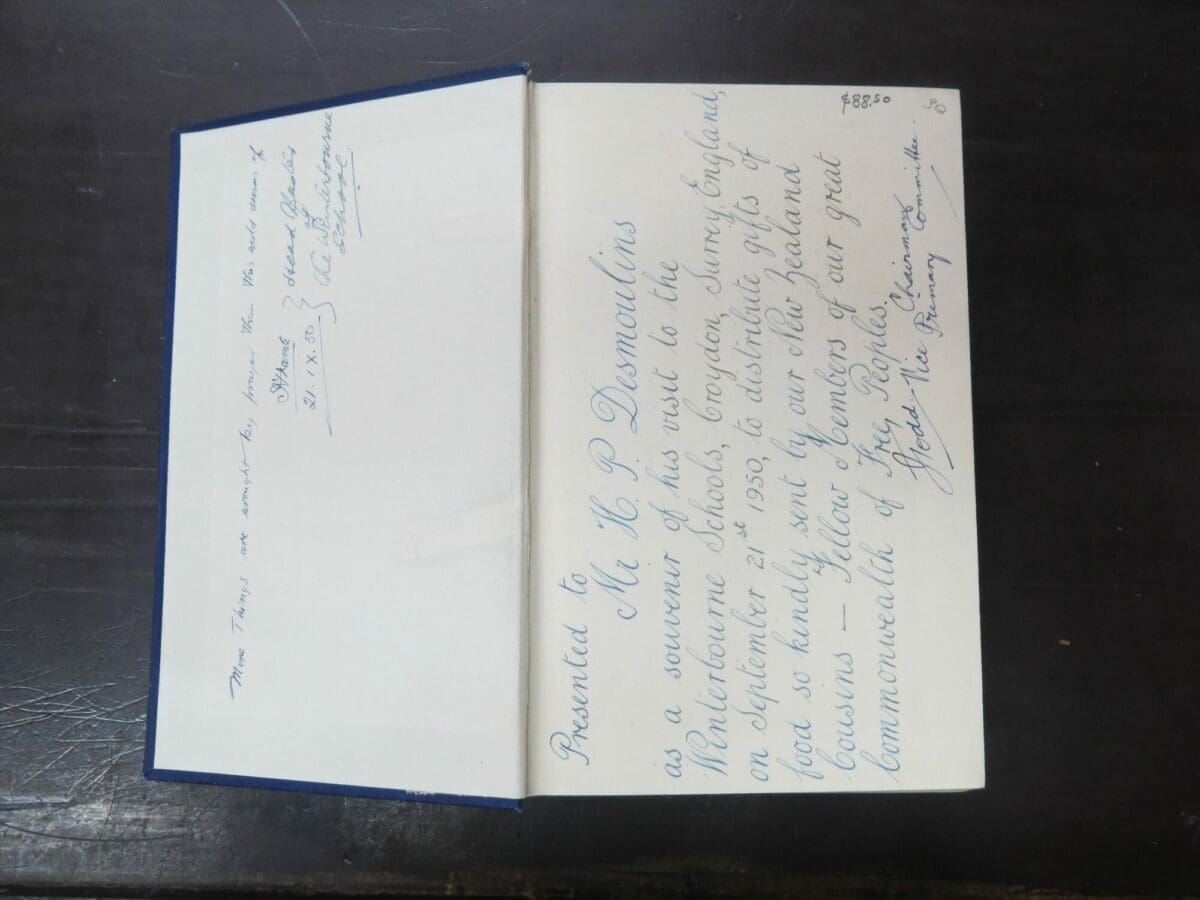 More Things are wrought by prayer than this world dreams of
21. IX. 50
Head Master
of
The Winterbourne
School.
$88.50
Presented to
Mr H. P. Desmoulins
as a souvenir of his visit to the
Winterbourne Schools, Croydon, Surrey, England,
on September 21st 1950, to distribute gifts of
food so kindly sent by our New Zealand
Cousins — Fellow Members of our great
Commonwealth of Free Peoples.
Vice Chairman
Primary Committee.